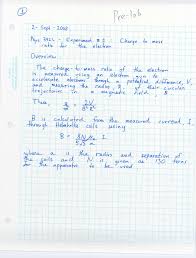 ①
Pre-lab
2-Sept-2008
Phys 3421 - Experiment #3: Charge to mass
ratio for the electron
Overview
The charge-to-mass ratio of the electron
is measured using an electron gun to
accelerate electrons through a potential difference, V,
and measuring the radius, R, of their circular
trajectories in a magnetic field B.
Thus, e/m = 2V/B²R²
B is calculated from the measured current, I,
through Helmholtz coils using
B = 8μ₀N/(5√5 a) I
where a is the radius and separation of
the coils and N is given as 130 turns
for the apparatus to be used.